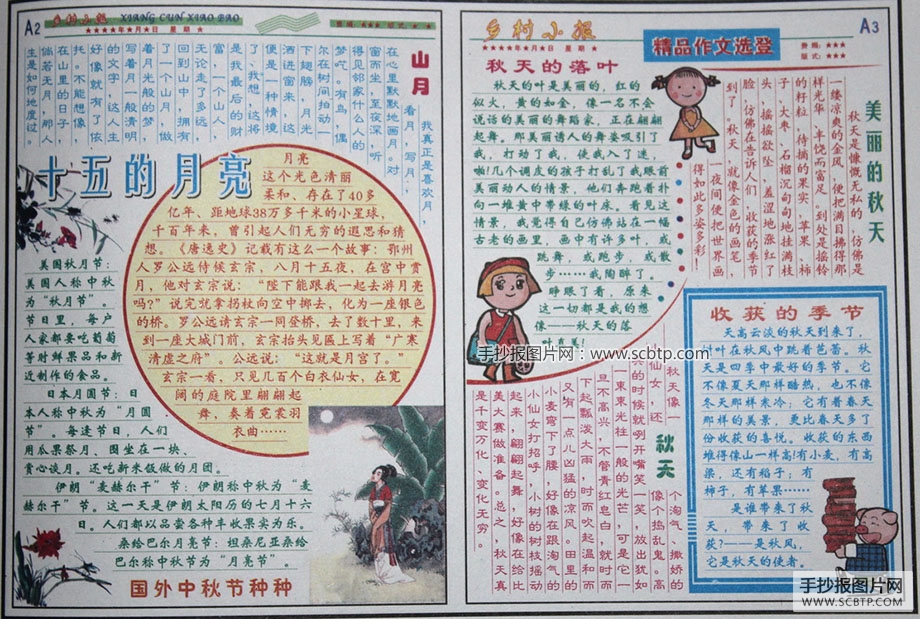 A2
乡村小报
XIANG CUN XIAO BAO
★★★★年★月★日 星期★
山月
我真正是喜欢月，
看月，写月，
在心里默默地画月。对
窗而坐，至夜深，听
得见邻家什么人的
梦呓。有鸟，偶
尔在树间拍动一
下翅膀，月光
便是一种情境
了。我想，这将
是我最后的财
富，一个山人，
无论走了多远，
回到山中，拥有
着月光般的梦，
写着月一般清明
的文字，这人生
好像就有了依
托。不能想像，
在山里的日子，
倘若无月，那人
生是如何地度过
十五的月亮
月亮
这个光色清丽
柔和、存在了40多
亿年、距地球38万多千米的小星球，
千百年来，曾引起人们无穷的遐思和猜
想。《唐逸史》记载有这么一个故事：鄂州
人罗公远侍候玄宗，八月十五夜，在宫中赏
月，他对玄宗说：“陛下能跟我一起去游月亮
吗？”说完就拿拐杖向空中掷去，化为一座银色
的桥。罗公远请玄宗一同登桥，去了数十里，来
到一座大城门前，玄宗抬头见匾上写着“广寒
清虚之府” 公远说：“这就是月宫了。”
玄宗一看，只见几百个白衣仙女，在宽
阔的庭院里翩翩起
舞，奏着霓裳羽
衣曲……
美国秋月节：
美国人称中秋
为“秋月节”。
节日里，每户
人家都要吃葡萄
等时鲜果品和新
近制作的食品。
日本月圆节：日
本人称中秋为“月圆
节”。每逢节日，人们
用瓜果祭月，围坐在一块、
赏心谈月。还吃新米饭做的月团。
伊朗“麦赫尔干”节：伊朗称中秋为“麦
赫尔干”节。这一天是伊朗太阳历的七月十六
日。人们都以品尝各种丰收果实为乐。
桑给巴尔月亮节：坦桑尼亚桑给
巴尔称中秋节为“月亮节”。
国外中秋节种种
乡村小报
A3
★★★★年★月★日 星期★
责编：★★★
版式：★★★
精品作文选登
秋天的落叶
秋天的叶是美丽的，红的
似火，黄的如金，像一名不会
说话的美丽的舞蹈家，正在翩翩
起舞。那美丽诱人的舞姿吸引了
我，打动了我，使我入了迷，
啪！几个调皮的孩子打乱了我眼前
美丽动人的情景，他们奔跑着扑
向一堆黄中带绿的叶床。看见这
情景，我觉得自己仿佛站在一幅
古老的画里，画中有许多叶，或
跳舞，或跑步，或散
步……我陶醉了。
睁眼了看，原来
这一切都是我的想
像——秋天的落
叶真美！
美丽的秋天
秋天是慷慨无私的，仿佛是
一缕凉爽的金风，便把满目拂得那
样光华、丰饶而富足。到处是摇铃
的籽粒、待摘的果实，苹果、柿
子、大枣、石榴沉甸甸地挂满枝
头，摇摇欲坠，羞涩地涨红了
脸，仿佛在告诉人们，收获的季节
到了。秋天，就像金色的画笔，
一夜间便把世界画
得如此多姿多彩！
收获的季节
天高云淡的秋天到来了，
树叶在秋风中跳着芭蕾。秋
天是四季中最好的季节。它
不像夏天那样酷热，也不像
冬天那样寒冷；它有着春天
那样的美景，更比春天多了
份收获的喜悦。收获的东西
堆得像山一样高！有小麦，有高
梁，还有稻子；有
柿子，有苹果……
是谁带来了秋
天，带来了收
获?——是秋风，
它是秋天的使者。
秋天
个淘气、撒娇的
像个捣乱鬼。高
秋天像一
仙女，还
兴的时候就咧开嘴笑一笑，放出犹如
一束束光柱一般的光芒，可是它一
旦不高兴，不管青红皂白，就时而
下起瓢泼大雨，时而吹起温和而
又有一点儿凶猛的凉风。田里的
小麦弯下了腰，好像在跟淘气的
小仙女打招呼，小树的树枝摇动
起来，翩翩起舞，好像在给比
美大赛做准备。总之，秋天真
是千变万化、变化无穷。
手抄报图片网：www.scbtp.com
手抄报图片网
WWW.SCBTP.COM